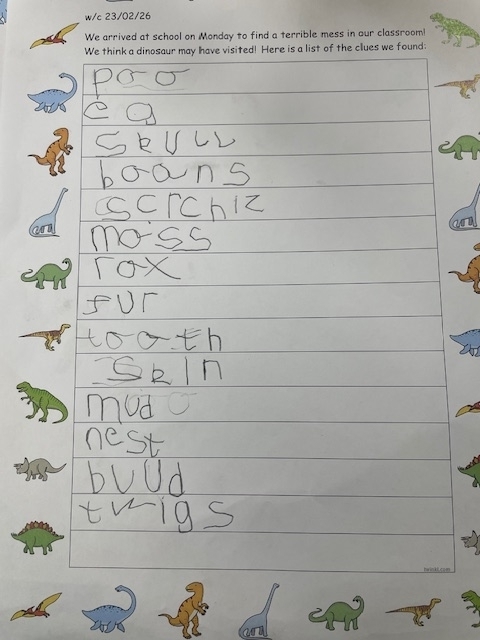 w/c 23/02/26
We arrived at school on Monday to find a terrible mess in our classroom!
We think a dinosaur may have visited! Here is a list of the clues we found:
poo
eg
skull
boans
scrchiz
moss
rox
fur
tooth
skin
mud
nest
buud
twigs
twinkl.com